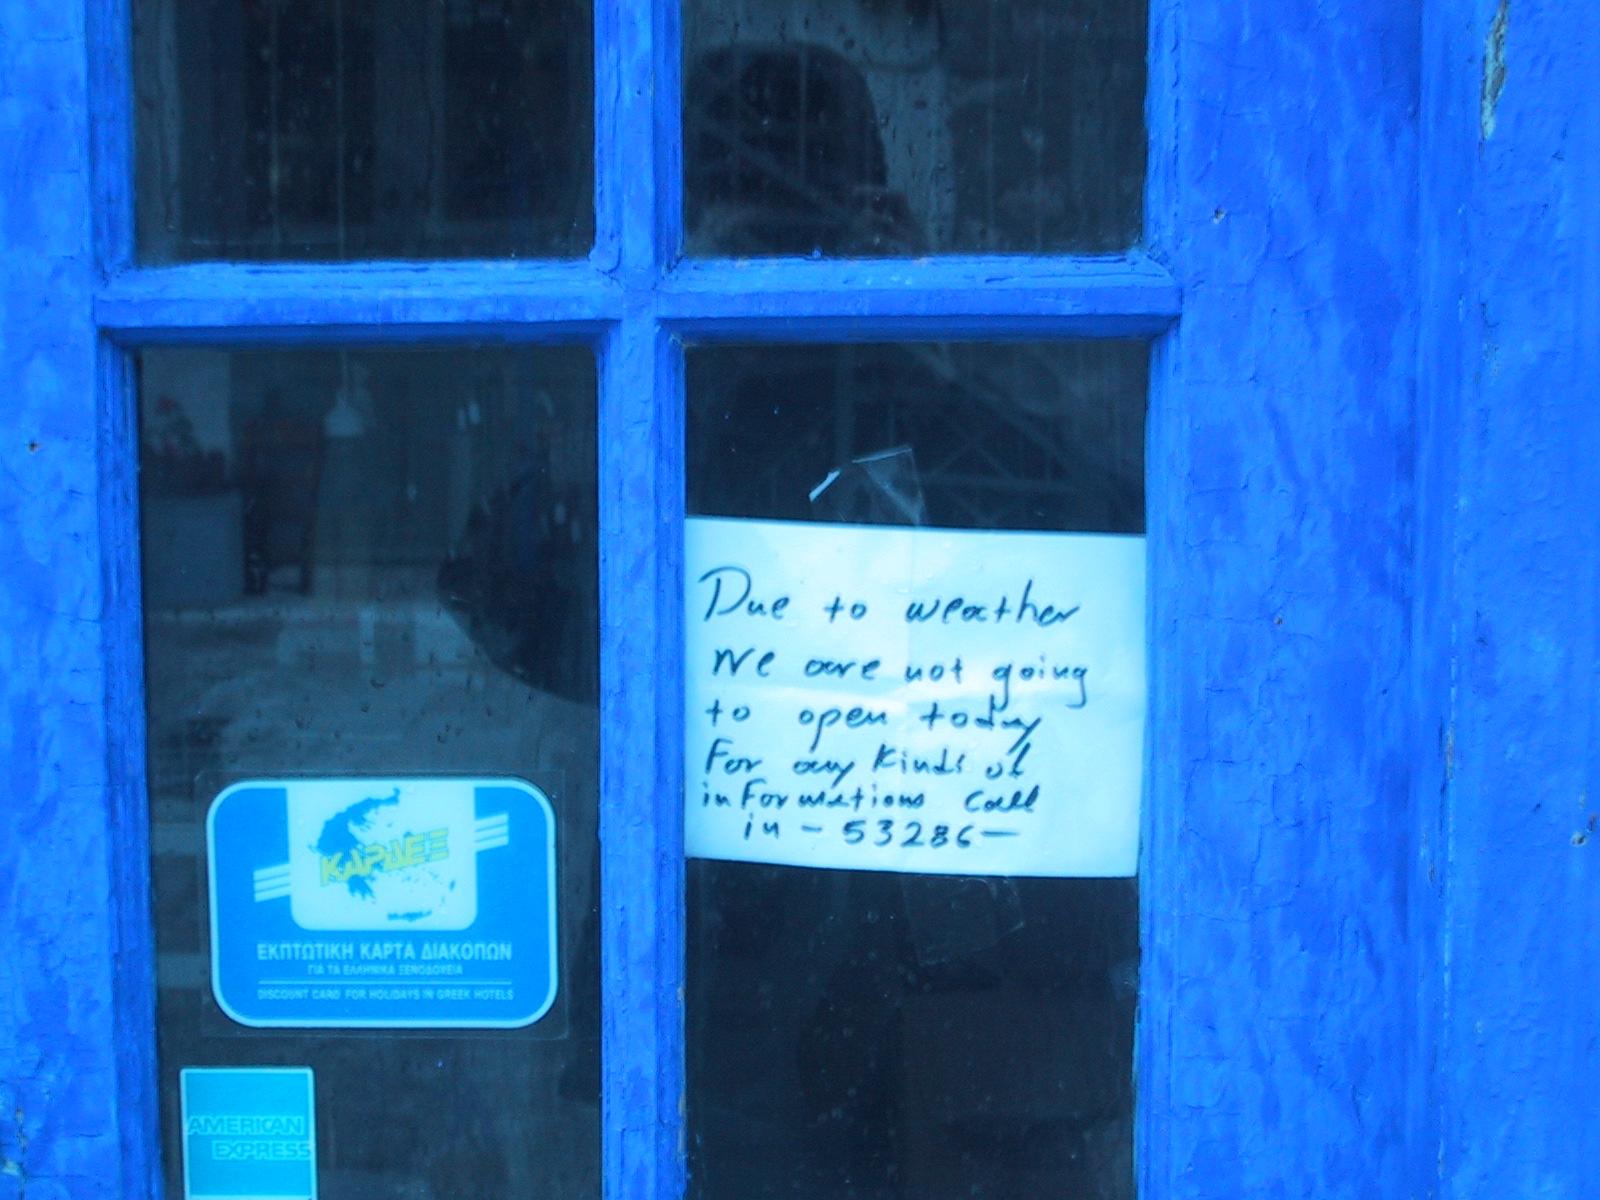 Due to weather
We are not going
to open today
For any kinds of
informations call
in - 53286 -
ΚΑΡΔΕΞ
ΕΚΠΤΩΤΙΚΗ ΚΑΡΤΑ ΔΙΑΚΟΠΩΝ
ΓΙΑ ΤΑ ΕΛΛΗΝΙΚΑ ΞΕΝΟΔΟΧΕΙΑ
DISCOUNT CARD FOR HOLIDAYS IN GREEK HOTELS
AMERICAN
EXPRESS